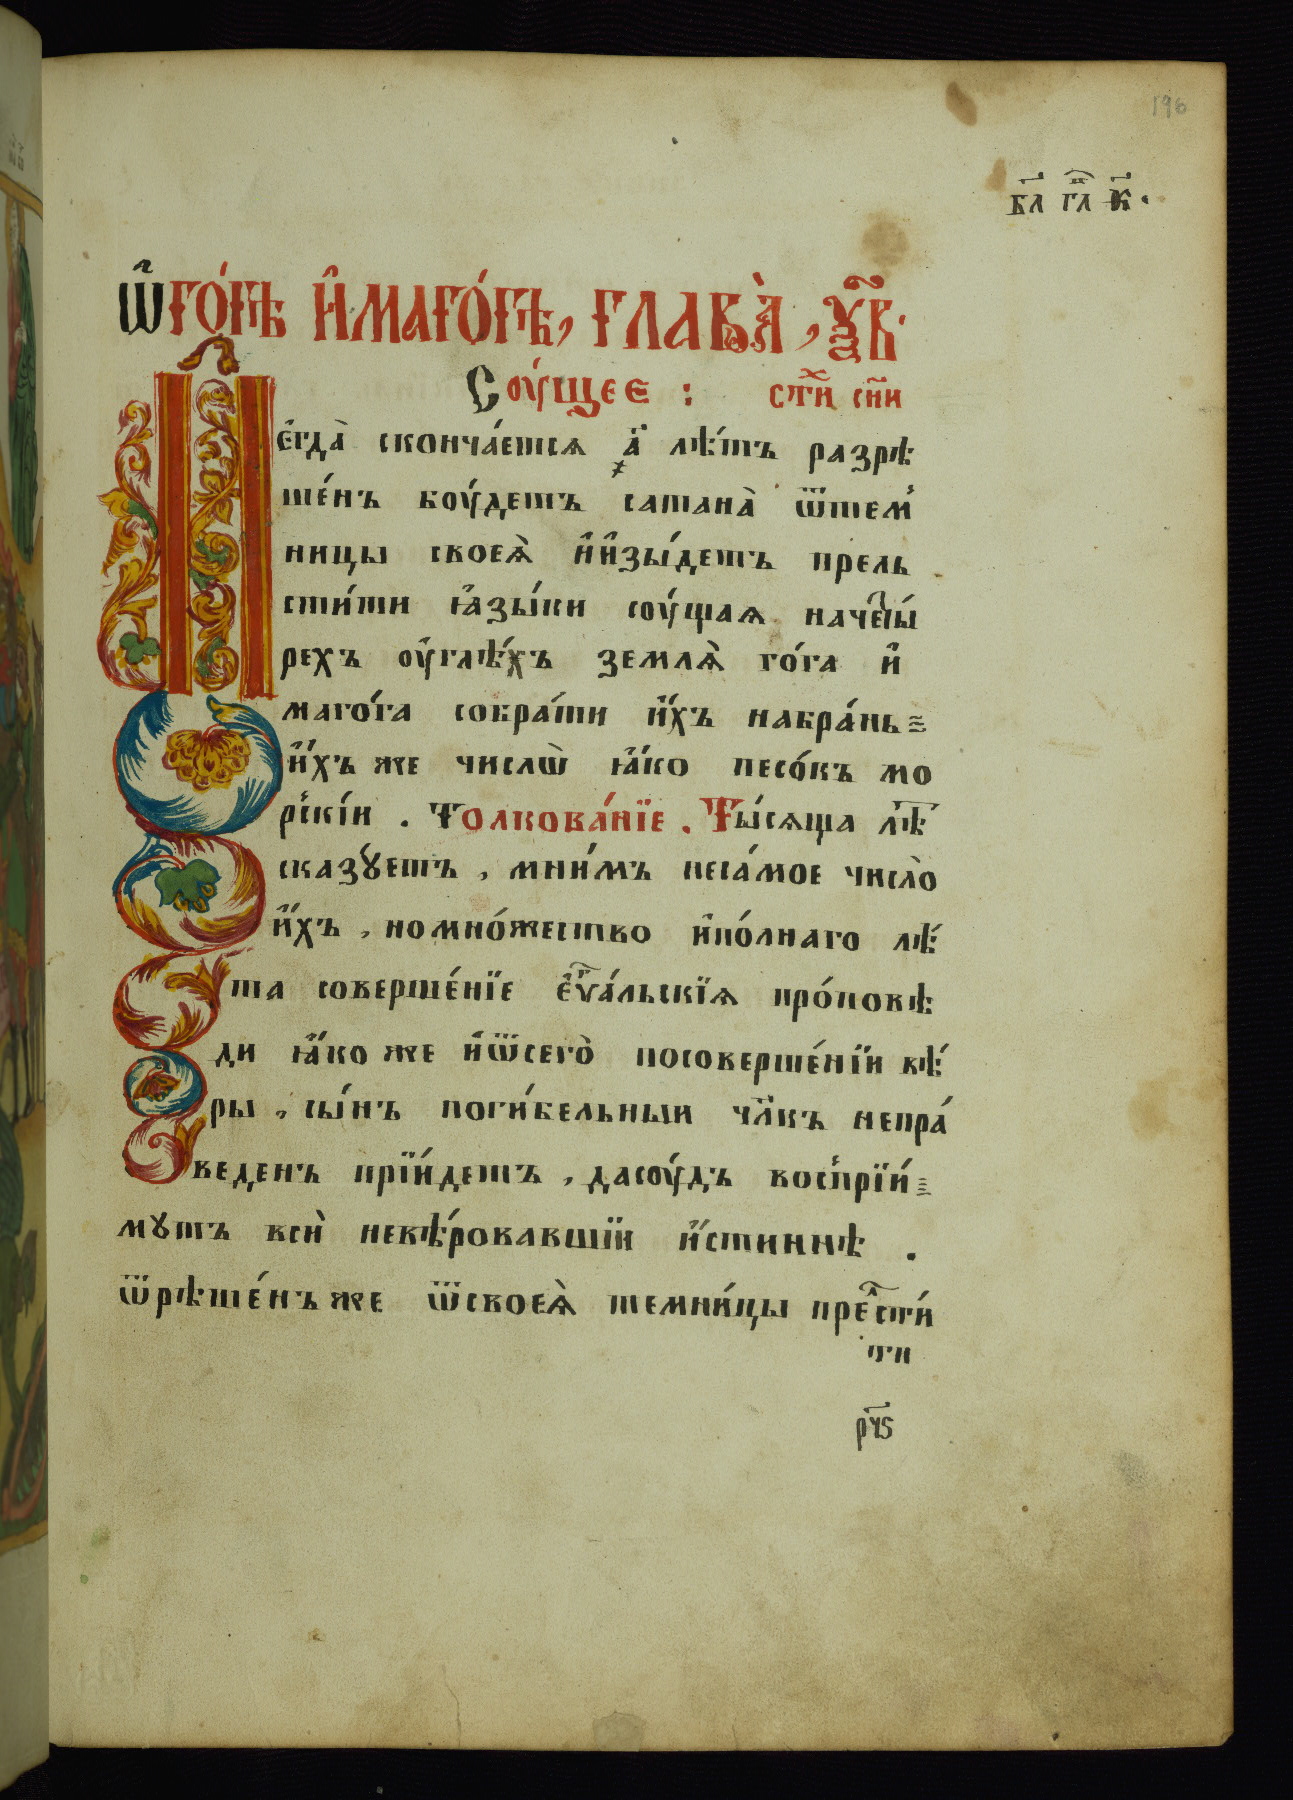 196
вл҃ гл҃ к҃.
Ѡ҆го́гѣ и҆маго́гѣ, глава̀, ѯ҃в.
Сꙋ́щее : ст҃и сп҃и
И҆
є҆гда̀ скончаетсѧ ҂а҃ лѣ́тъ разрѣ
ше́нъ боу́детъ сатана̀ ѿтем
ницы своеѧ̀ и҆и҆зы́детъ прель
сти́ти ꙗ҆зы́ки соу́щаѧ начеты́
рехъ оу҆глѣ́хъ землѧ̀ го́га и҆
маго́га собра́ти и҆́хъ набра́нь
и҆́хъ же число̀ ꙗ҆́ко песо́къ мо
рскі́и . Толкова́нїе . Ты́сѧща лѣ́т
сказꙋетъ , мни́мъ неса́мое число̀
и҆́хъ , номно́жество и҆по́лнаго лѣ́
та соверше́нїе є҆ѵⷢ҇а́льскїѧ про́повѣ
ди ꙗ҆́ко же и҆ѿсего̀ посоверше́нїи вѣ́
ры , сы́нъ поги́бельныи чл҃къ непра́
веденъ прїи́детъ , дасоу́дъ воспрїи́
мꙋтъ всѝ невѣ́ровавшїи и҆́стиннѣ .
ѿрѣше́нъ же ѿсвоеѧ̀ темни́цы преⷧ҇сти́
ти
рч҃ѕ